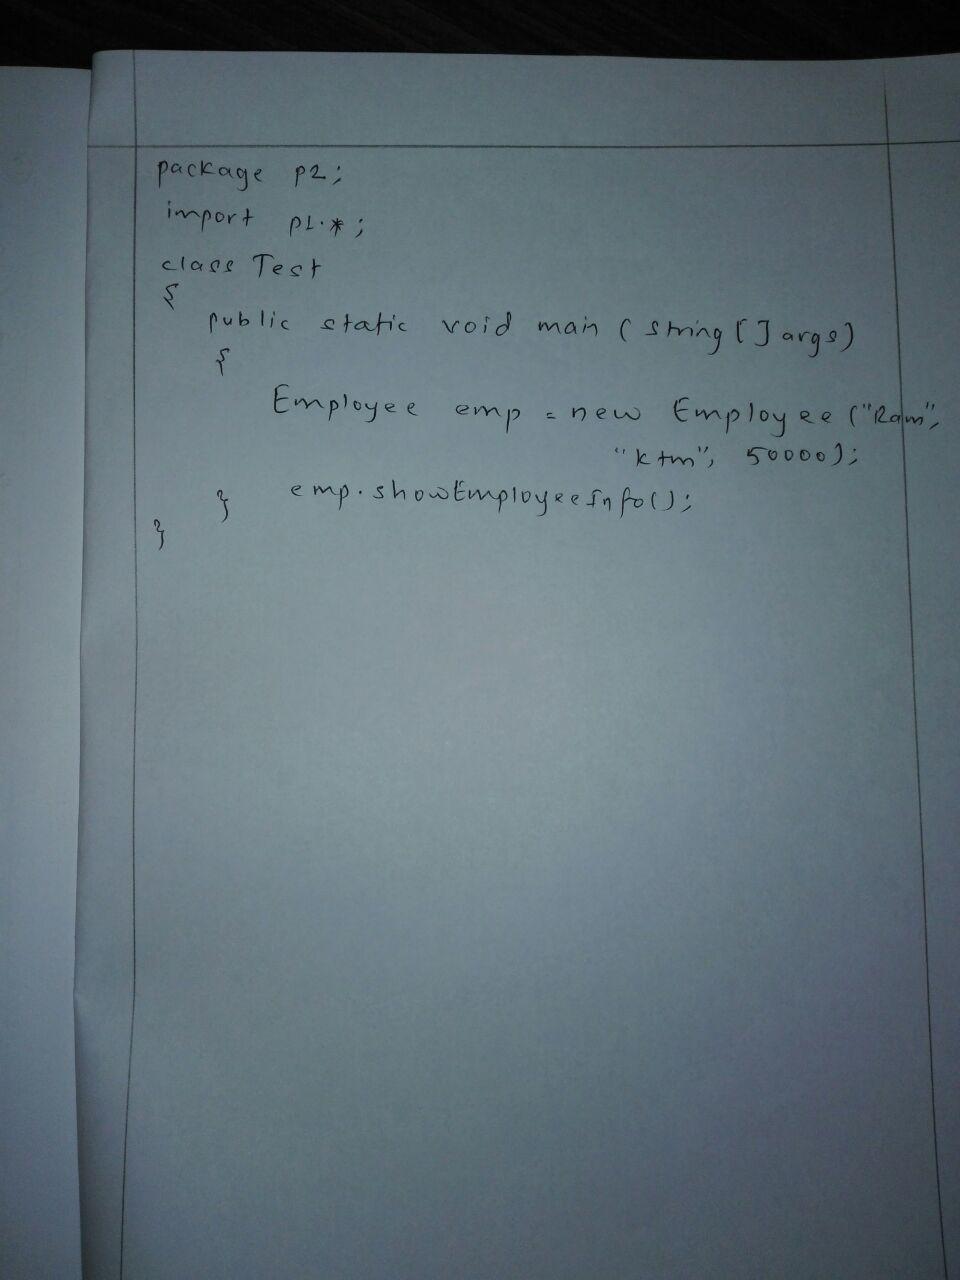 package p2;
import p1.*;
class Test
{
public static void main (string [] args)
{
Employee emp = new Employee ("Ram",
"ktm", 50000);
emp.showEmployeeInfo();
}
}